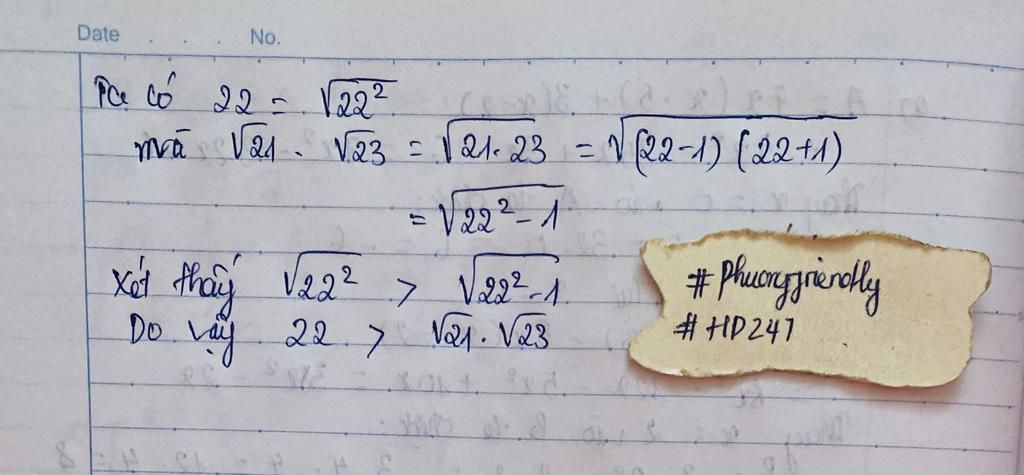 Date . . . . No.
Ta có 22 = √22²
mà √21 . √23 = √21.23 = √(22-1) (22+1)
= √22²-1
Xét thấy √22² > √22²-1
Do vậy 22 > √21 . √23
# Phuongfriendly
# HD247